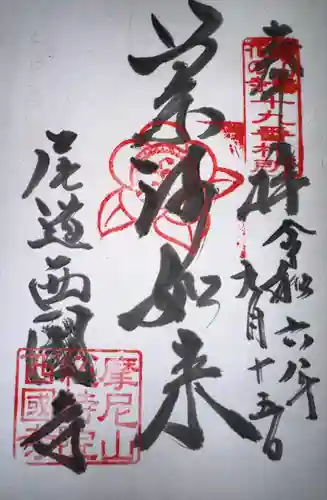 奉拝
十九番札所
令和六年
九月十五日
薬師如来
尾道西國寺
摩尼山
總持院
西國寺